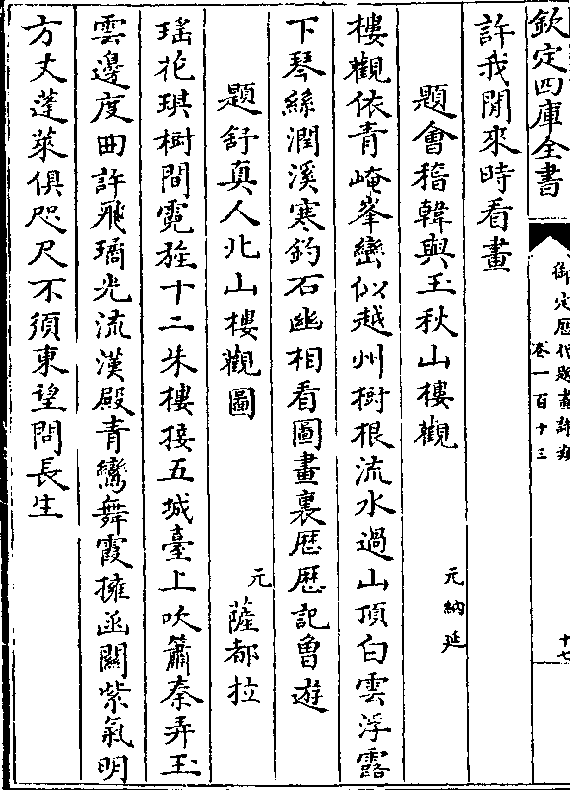 欽定四庫全書
御定歷代題畫詩類
卷一百十三
十七
許我閒來時看畫
題會稽韓與玉秋山樓觀
元納延
樓觀依青崦峯巒似越州樹根流水過山頂白雲浮露
下琴絲潤溪寒釣石幽相看圖畫裏歴歴記曽遊
題舒真人北山樓觀圖
元薩都拉
瑶花琪樹間霓旌十二朱樓接五城臺上吹簫秦弄玉
雲邊度曲許飛瓊光流漢殿青鸞舞霞擁函關紫氣明
方丈蓬萊俱咫尺不須東望問長生